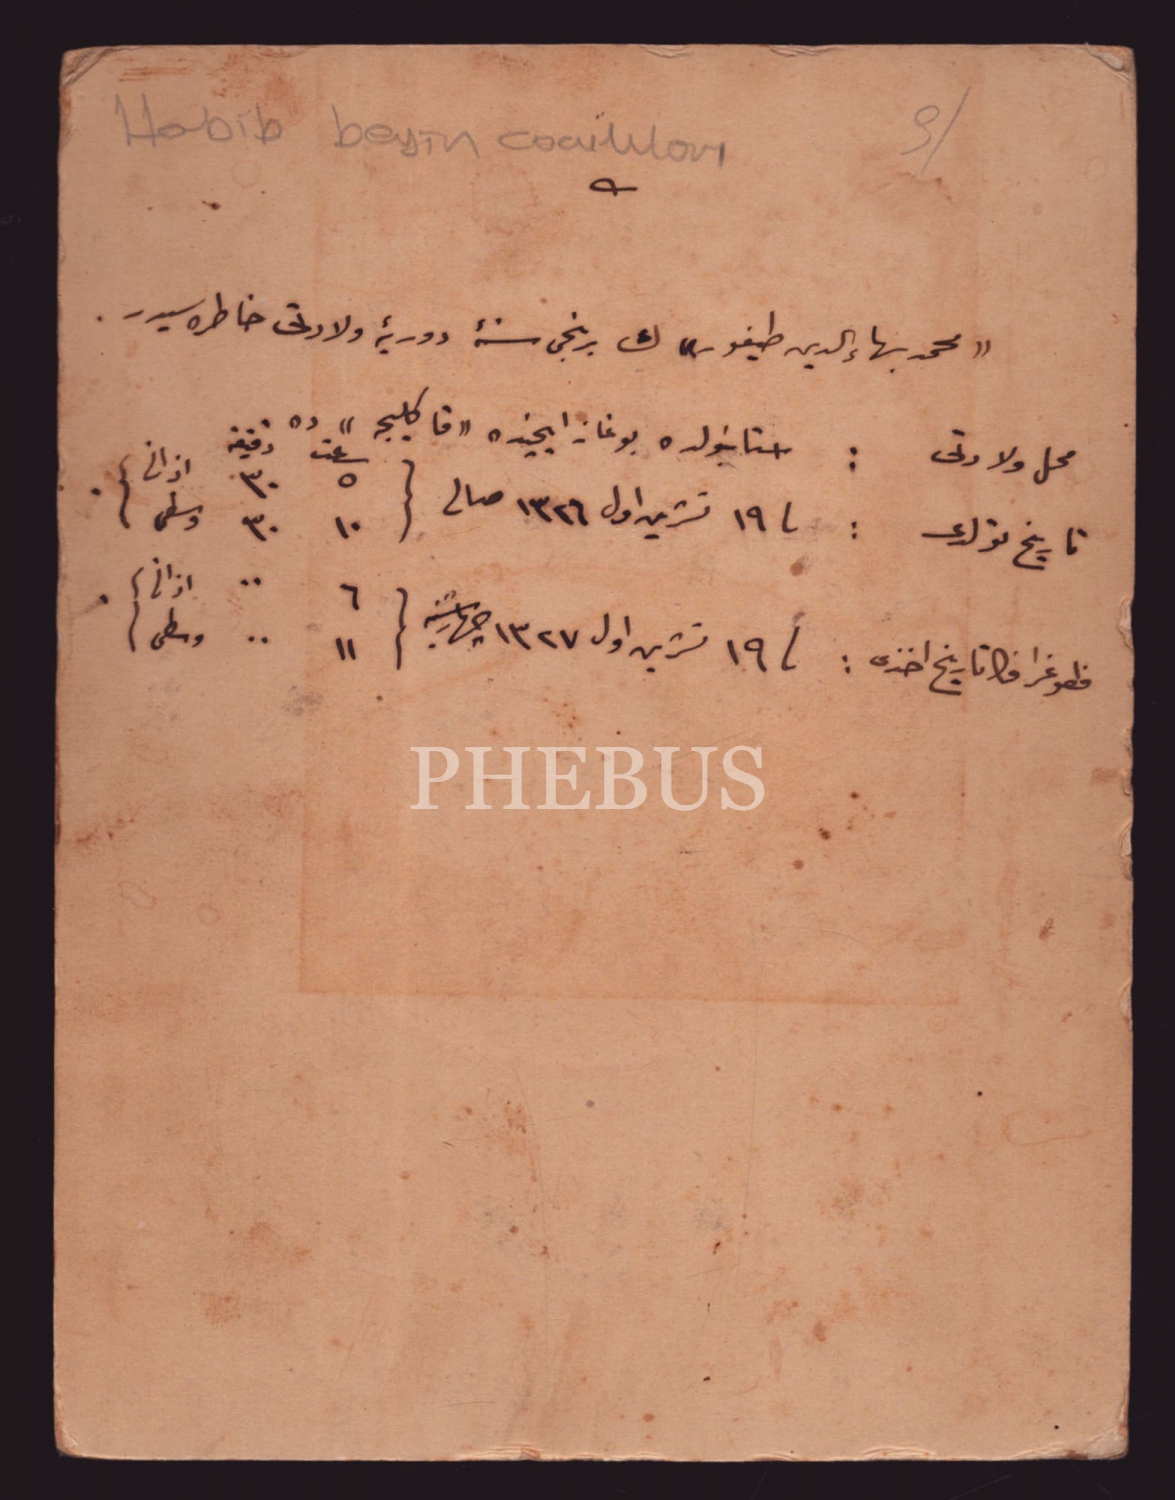 Habib beyin cocukları
9/
«محمد بهاء الدین طیفور» ك برنجی سنهٔ دوریهٔ ولادتی خاطره‌سیدر .
محل ولادتی : استانبولده بوغاز ایچنده «قاكلیجه» ده
ساعت دقیقه
تاریخ تولدی : ١٩ تشرین اول ١٣٢٦ صالی { ٥ ٣٠ اذانی
١٠ ٣٠ وسطی } .
فطوغرافك تاریخ اخذی : ١٩ تشرین اول ١٣٢٧ چهارشنبه { ٦ ٠٠ اذانی
١١ ٠٠ وسطی } .
PHEBUS